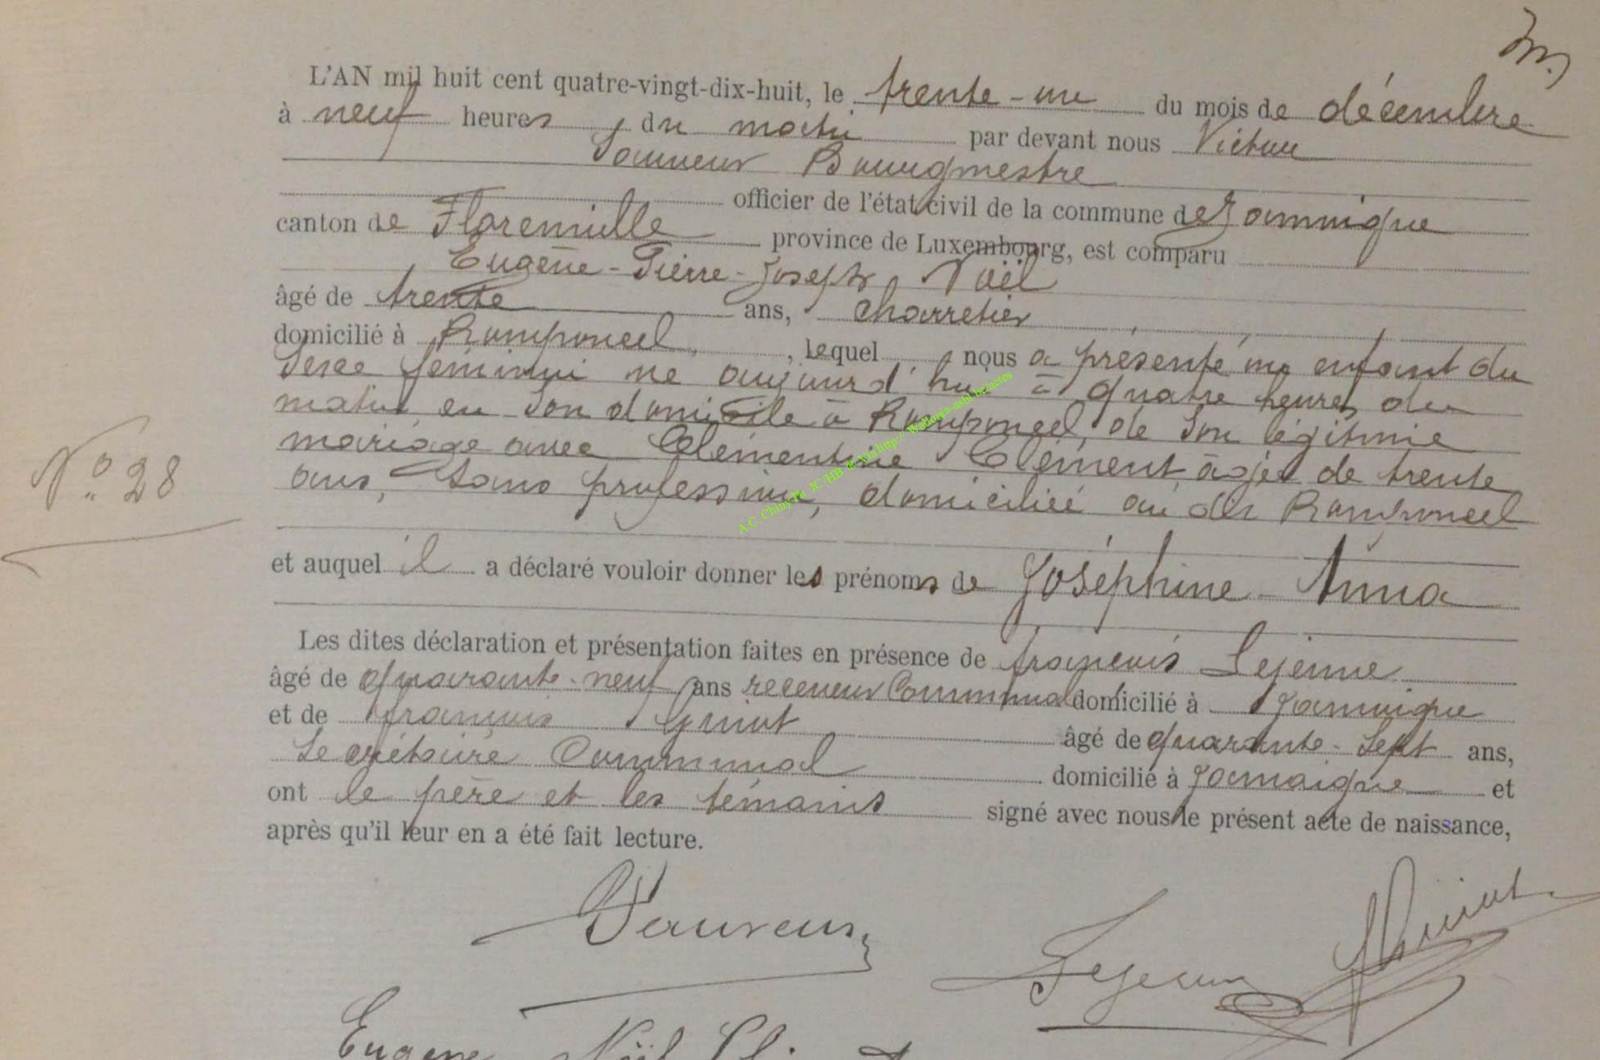 L'AN mil huit cent quatre-vingt-dix-huit, le trente-un du mois de décembre
à neuf heures du matin par devant nous Victor
Bourgmestre
officier de l'état civil de la commune de Jamoigne
canton de Florenville province de Luxembourg, est comparu
Eugène-Pierre-Joseph Noël
âgé de trente ans, charretier
domicilié à Romponcel, lequel nous a présenté un enfant du
sexe féminin né aujourd'hui à quatre heures du
matin en son domicile à Romponcel, de son légitime
mariage avec Clémentine Clément, âgée de trente
ans, sans profession, domiciliée au dit Romponcel
N° 28
et auquel il a déclaré vouloir donner les prénoms de Joséphine-Anna
Les dites déclaration et présentation faites en présence de françois Lejeune
âgé de quarante-neuf ans receveur Communal domicilié à Jamoigne
et de françois âgé de quarante-sept ans,
Secrétaire Communal domicilié à Jamoigne et
ont le père et les témoins signé avec nous le présent acte de naissance,
après qu'il leur en a été fait lecture.
Lejeune
Eugène Noël